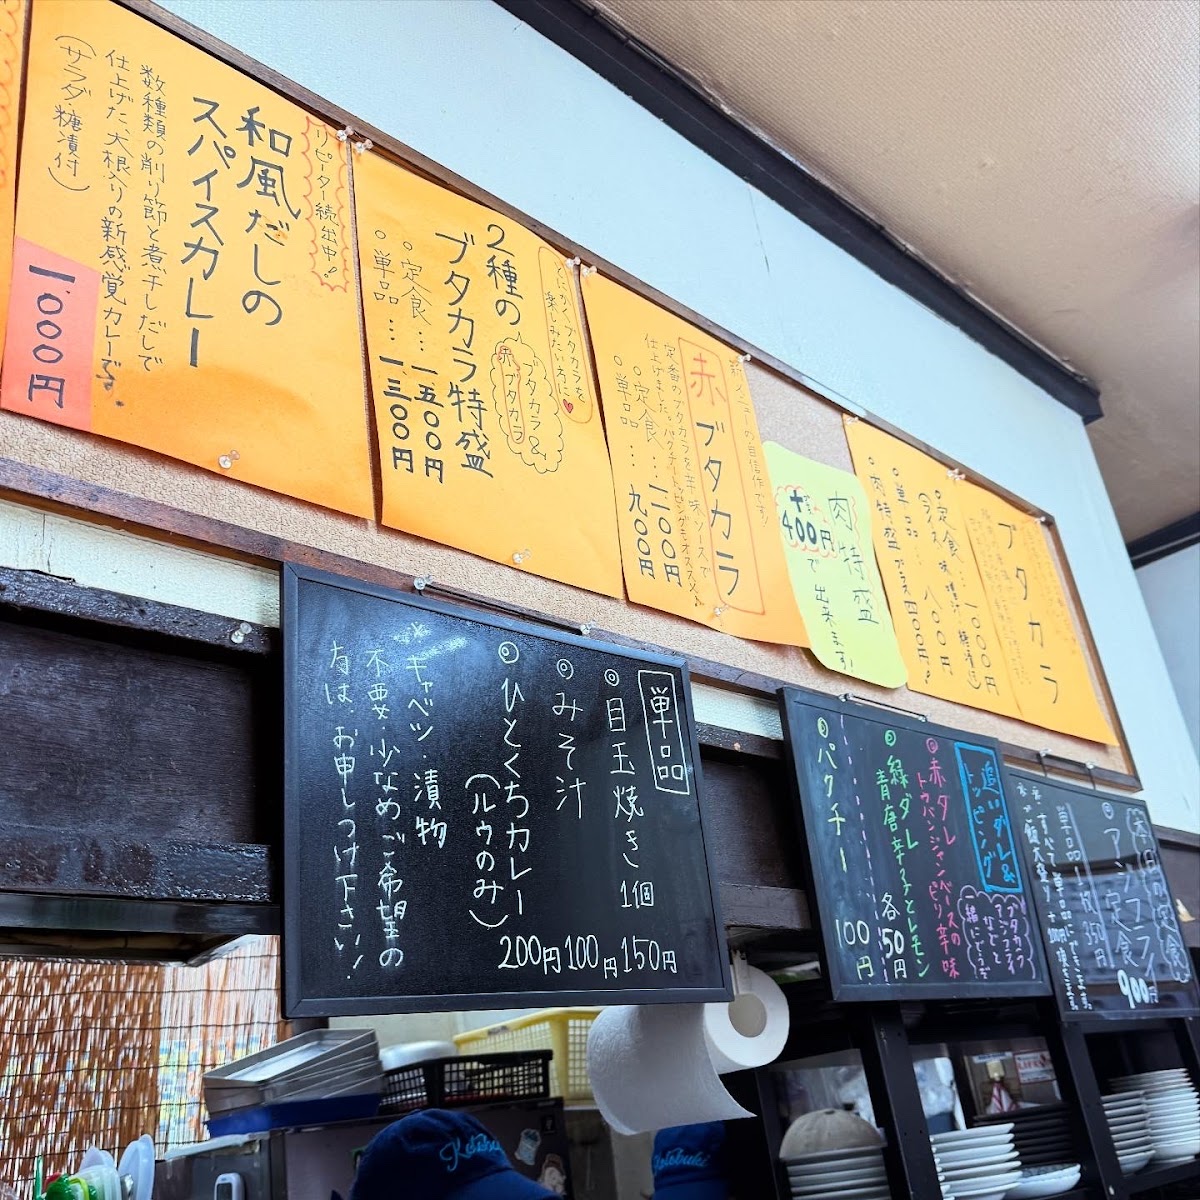 ブタカラ
○定食…一〇〇〇円
○単品…八〇〇円
○肉特盛プラス四〇〇円!
肉特盛
+400円
で出来ます!
赤ブタカラ
定番のブタカラを辛味ソースで
仕上げました。パクチートッピングもオススメ♪
○定食…一一〇〇円
○単品…九〇〇円
とにかくブタカラを
楽しみたい方に♥
2種の
ブタカラ特盛
ブタカラ&
赤ブタカラ
○定食…一五〇〇円
○単品…一三〇〇円
リピーター続出中!
和風だしの
スパイスカレー
数種類の削り節と煮干しだしで
仕上げた、大根入りの新感覚カレーです。
(サラダ、糖漬付)
一、〇〇〇円
本日の定食
アジフライ
定食
900円
単品
350円
追いダレ&
トッピング
ブタカラ
アジフライ
などと
一緒にどうぞ
◎赤ダレ
トウバンジャンベースのピリ辛味
◎緑ダレ
青唐辛子とレモン
各50円
◎パクチー
100円
単品
◎目玉焼き 1個 150円
◎みそ汁 100円
◎ひとくちカレー
(ルゥのみ) 200円
※キャベツ・漬物
不要・少なめご希望の
方は、お申しつけ下さい!